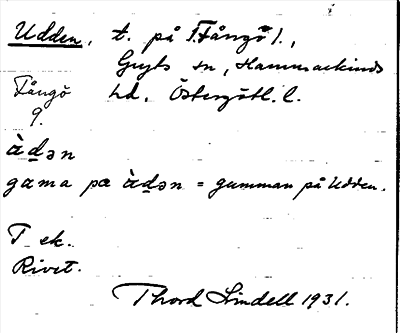 Udden, t. på Fångö 1.,
Gryts sn, Hammarkinds
Fångö hd, Östergötl. l.
9.
ὰd̲ən
gama pɑ ὰd̲ən = gumman på Udden.
T ek.
Rivet.
Thord Lindell 1931.